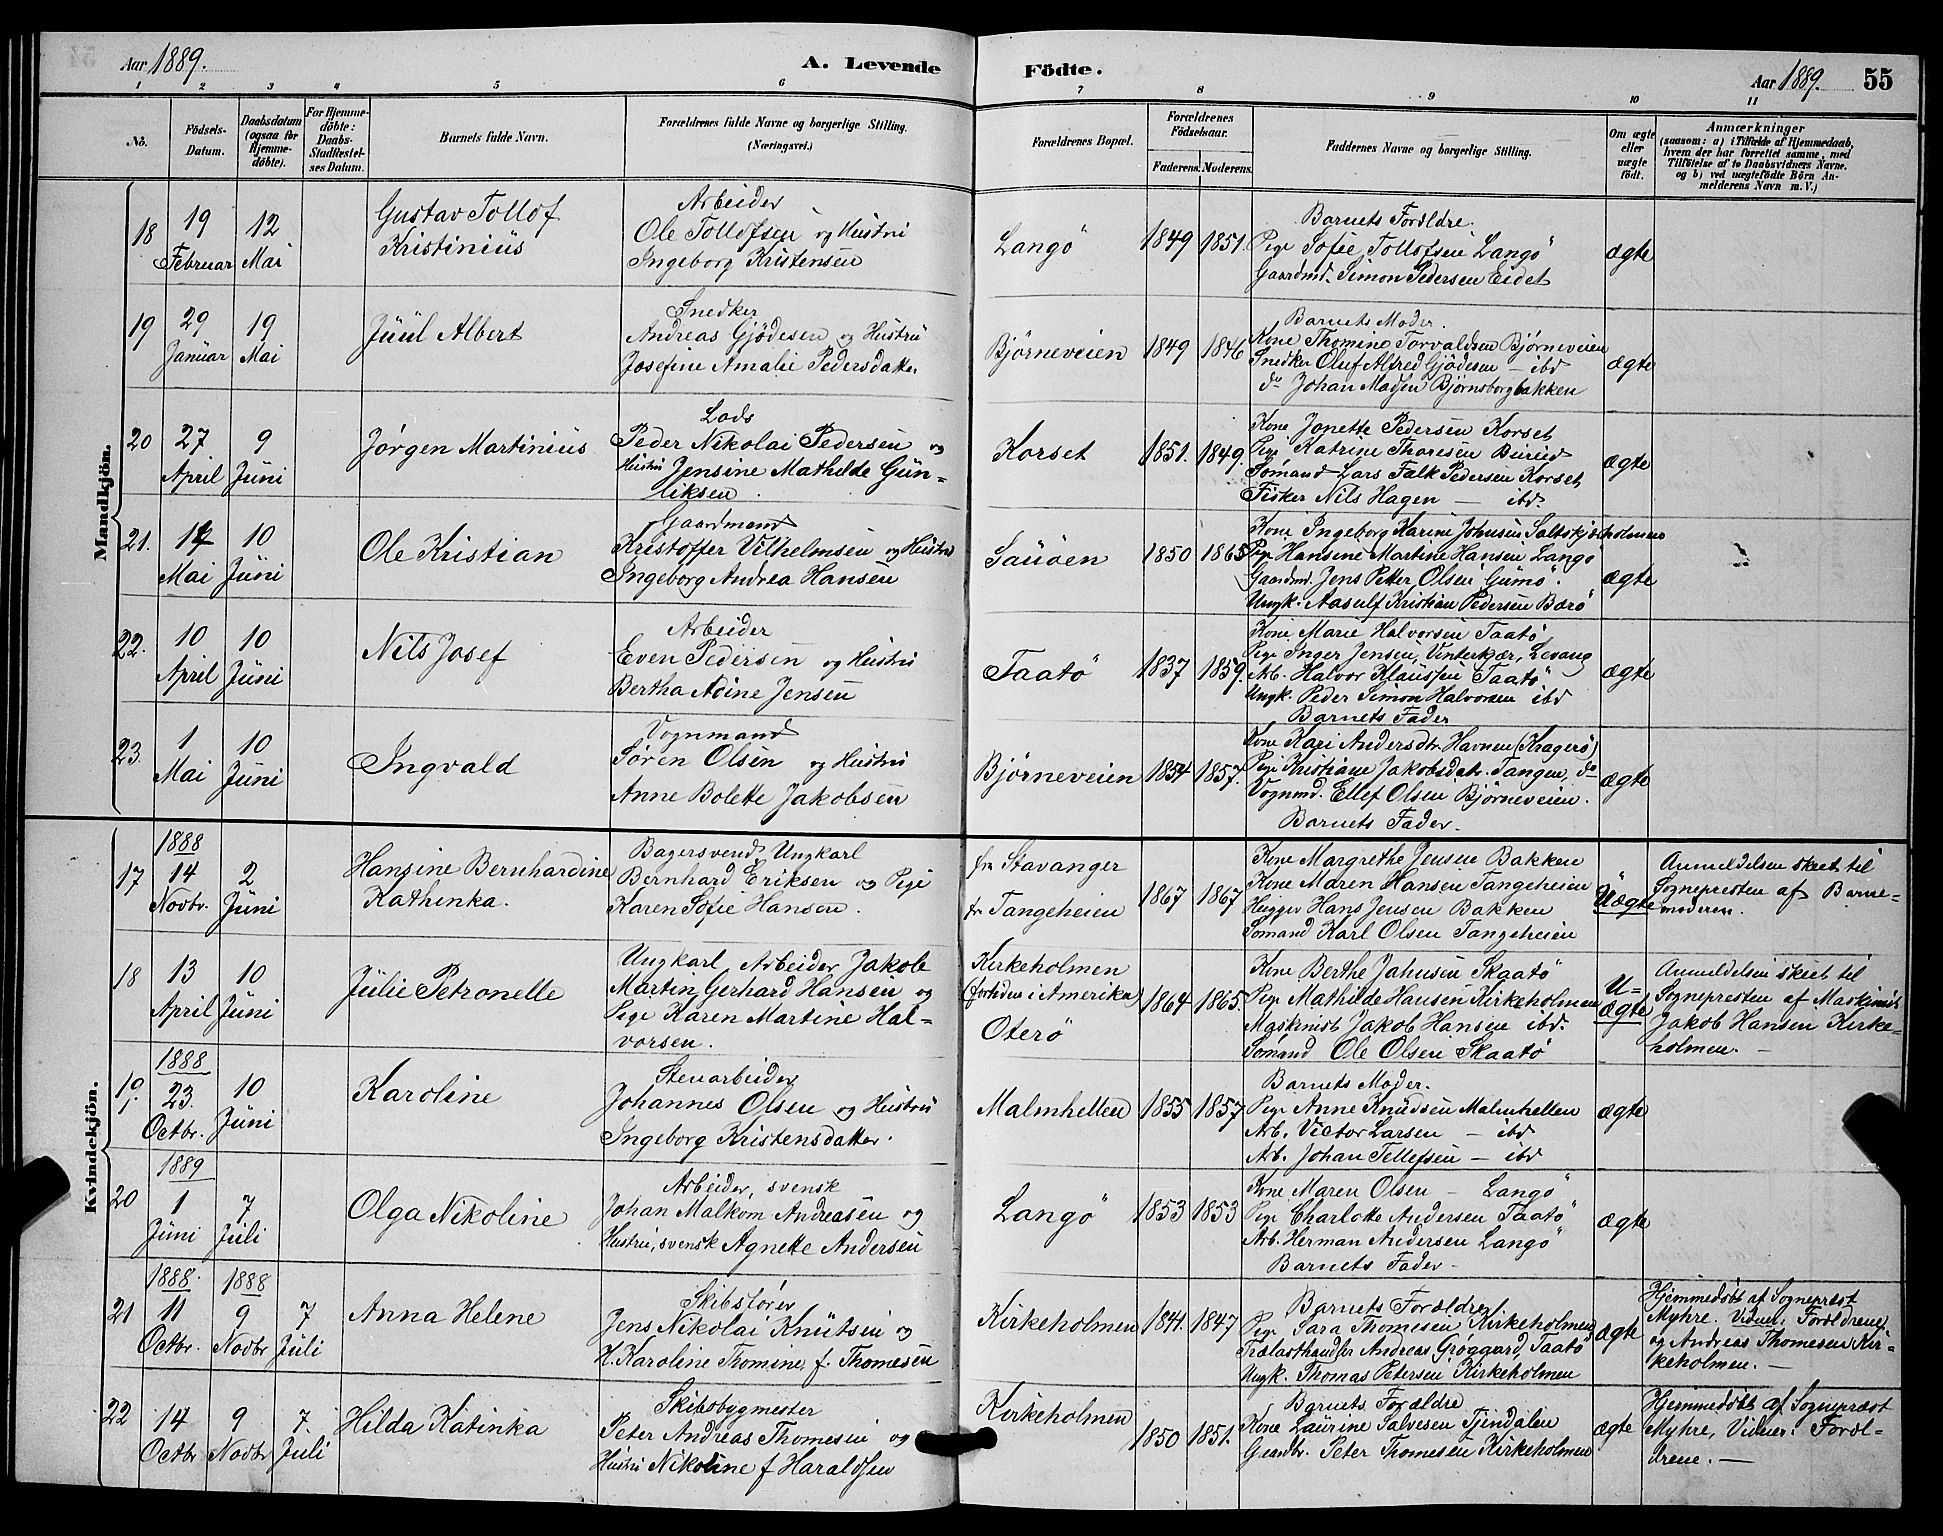 Aar 1889.
A. Levende Födte.
Aar 1889. 55
1 2 3 4 5 6 7 8 9 10 11
No.
Födsels-
Datum.
Daabsdatum
(ogsaa for
Hjemme-
döbte).
For Hjemme-
döbte:
Daabs-
Stadfæstel-
ses Datum.
Barnets fulde Navn.
Forældrenes fulde Navne og borgerlige Stilling.
(Næringsvei.)
Forældrenes Bopæl.
Forældrenes
Födselsaar.
Faderens. Moderens.
Faddernes Navne og borgerlige Stilling.
Om ægte
eller
uægte
födt.
Anmærkninger
(saasom: a) i Tilfælde af Hjemmedaab,
hvem der har forrettet samme, med
Tilföielse af to Daabsvidners Navne.
og b) ved uægtefödte Börn An-
melderens Navn m. V.)
Mandkjön.
18
19
Februar
12
Mai
Gustav Tollof
Kristinius
Arbeider
Ole Tollofsen og Hustru
Ingeborg Kristensen
Langö
1849 1851.
Barnets Forældre.
Pige Sofie Tollofsen Langö
Gaardmd. Simon Pedersen Eidet
ægte
19
29
Januar
19
Mai
Juul Albert
Snedker
Andreas Gjödesen og Hustru
Josefine Amalie Pedersdatter
Björneveien
1849 1846
Barnets Moder.
Kone Thomine Torvaldsen Björneveien
Snedker Oluf Alfred Gjödesen - ibd
do Johan Madsen Björnsborgbakken
ægte
20
27
April
9
Juni
Jørgen Martinius
Lods
Peder Nikolai Pedersen og
Hustru Jensine Mathilde Gun-
liksen.
Korset
1851. 1849.
Kone Jonette Pedersen Korset
Pige Katrine Thoresen Buried
Sömand Lars Falk Pedersen Korset
Fisker Nils Hagen — ibd.
ægte
21.
14
Mai
10
Juni
Ole Kristian
Gaardmand
Kristoffer Vilhelmsen og Hustru
Ingeborg Andrea Hansen
Sauöen
1850 1865
Kone Ingeborg Karine Johnsen Saltskjælholmen
Pige Hansine Martine Hansen Langö
Gaardmd. Jens Petter Olsen Gumö.
Ungk. Aasulf Kristian Pedersen Barö
ægte
22.
10
April
10
Juni
Nils Josef
Arbeider
Even Pedersen og Hustru
Bertha Adine Jensen
Taatö
1837 1859.
Kone Marie Halvorsen Taatö
Pige Inger Jensen, Vinterkær, Levang
Arb. Halvor Klausen Taatö
Ungk. Peder Simon Halvorsen ibd
Barnets Fader
ægte
23.
1
Mai
10
Juni
Ingvald
Vognmand
Sören Olsen og Hustru
Anne Bolette Jakobsen
Björneveien
1854 1857.
Kone Kari Andersdtr. Havnen (Kragerö)
Pige Kristiane Jakobsdatr. Tangen, do
Vognmd. Ellef Olsen Björneveien.
Barnets Fader.
ægte
Kvindekjön.
17
1888
14
Novbr.
2
Juni
Hansine Bernhardine
Kathinka.
Bagersvend, Ungkarl
Bernhard Eriksen og Pige
Karen Sofie Hansen.
fra Stavanger
fr Tangeheien
1867 1867
Kone Margrethe Jensen Bakken
Kone Maren Hansen Tangeheien
Hugger Hans Jensen Bakken
Sömand Karl Olsen Tangeheien
Uægte
Anmeldelsen skeet til
Sognepresten af Barne-
moderen.
18
13
April
10
Juni
Julie Petronelle
Ungkarl, Arbeider Jakob
Martin Gerhard Hansen og
Pige Karen Martine Hal-
vorsen.
Kirkeholmen
(fortiden i Amerika)
Oterö
1864 1865.
Kone Berthe Jahnsen Skaatö
Pige Mathilde Hansen Kirkeholmen
Maskinist Jakob Hansen ibd.
Sömand Ole Olsen Skaatö
U-
ægte
Anmeldelsen skeet til
Sognepresten af Maskinist
Jakob Hansen Kirke-
holmen. —
19.
1888
23.
Octbr.
10
Juni
Karoline
Stenarbeider
Johannes Olsen og Hustru
Ingeborg Kristensdatter.
Malmhellen
1855 1857
Barnets Moder.
Pige Anne Knudsen Malmhellen
Arb. Victor Larsen — ibd
Arb. Johan Tellefsen — ibd
ægte
20
1889
1
Juni
7
Juli
Olga Nikoline
Arbeider, svensk
Johan Malkom Andreasen og
Hustru, svensk Agnette Andersen
Langö
1853 1853
Kone Maren Olsen — Langö
Pige Charlotte Andersen Taatö
Arb. Herman Andersen Langö
Barnets Fader —
ægte
21
1888.
11
Octbr.
1888
9
Novbr
7
Juli
Anna Helene
Skibsfører
Jens Nikolai Knutsen og
H. Karoline Thomine, f. Thomesen
Kirkeholmen
1841. 1847
Barnets Forældre.
Pige Sara Thomesen Kirkeholmen
Trælasthandler Andreas Gröggard, Taatö
Ungk. Thomas Petersen Kirkeholmen
ægte
Hjemmedöbt af Sogneprest
Myhre. Vidner: Forældrene
og Andreas Thomesen Kir-
keholmen. —
22
14
Octbr
9
Novbr
7.
Juli
Hilda Katinka
Skibsbygmester
Peter Andreas Thomesen og
Hustru Nikoline f Haraldsen
Kirkeholmen
1850 1851.
Barnets Forældre
Kone Laurine Salvesen Tjendalen
Gaardbr. Peter Thomesen Kirkeholmen
ægte
Hjemmedöbt af Sogneprest
Myhre, Vidner: Foræl-
drene. —